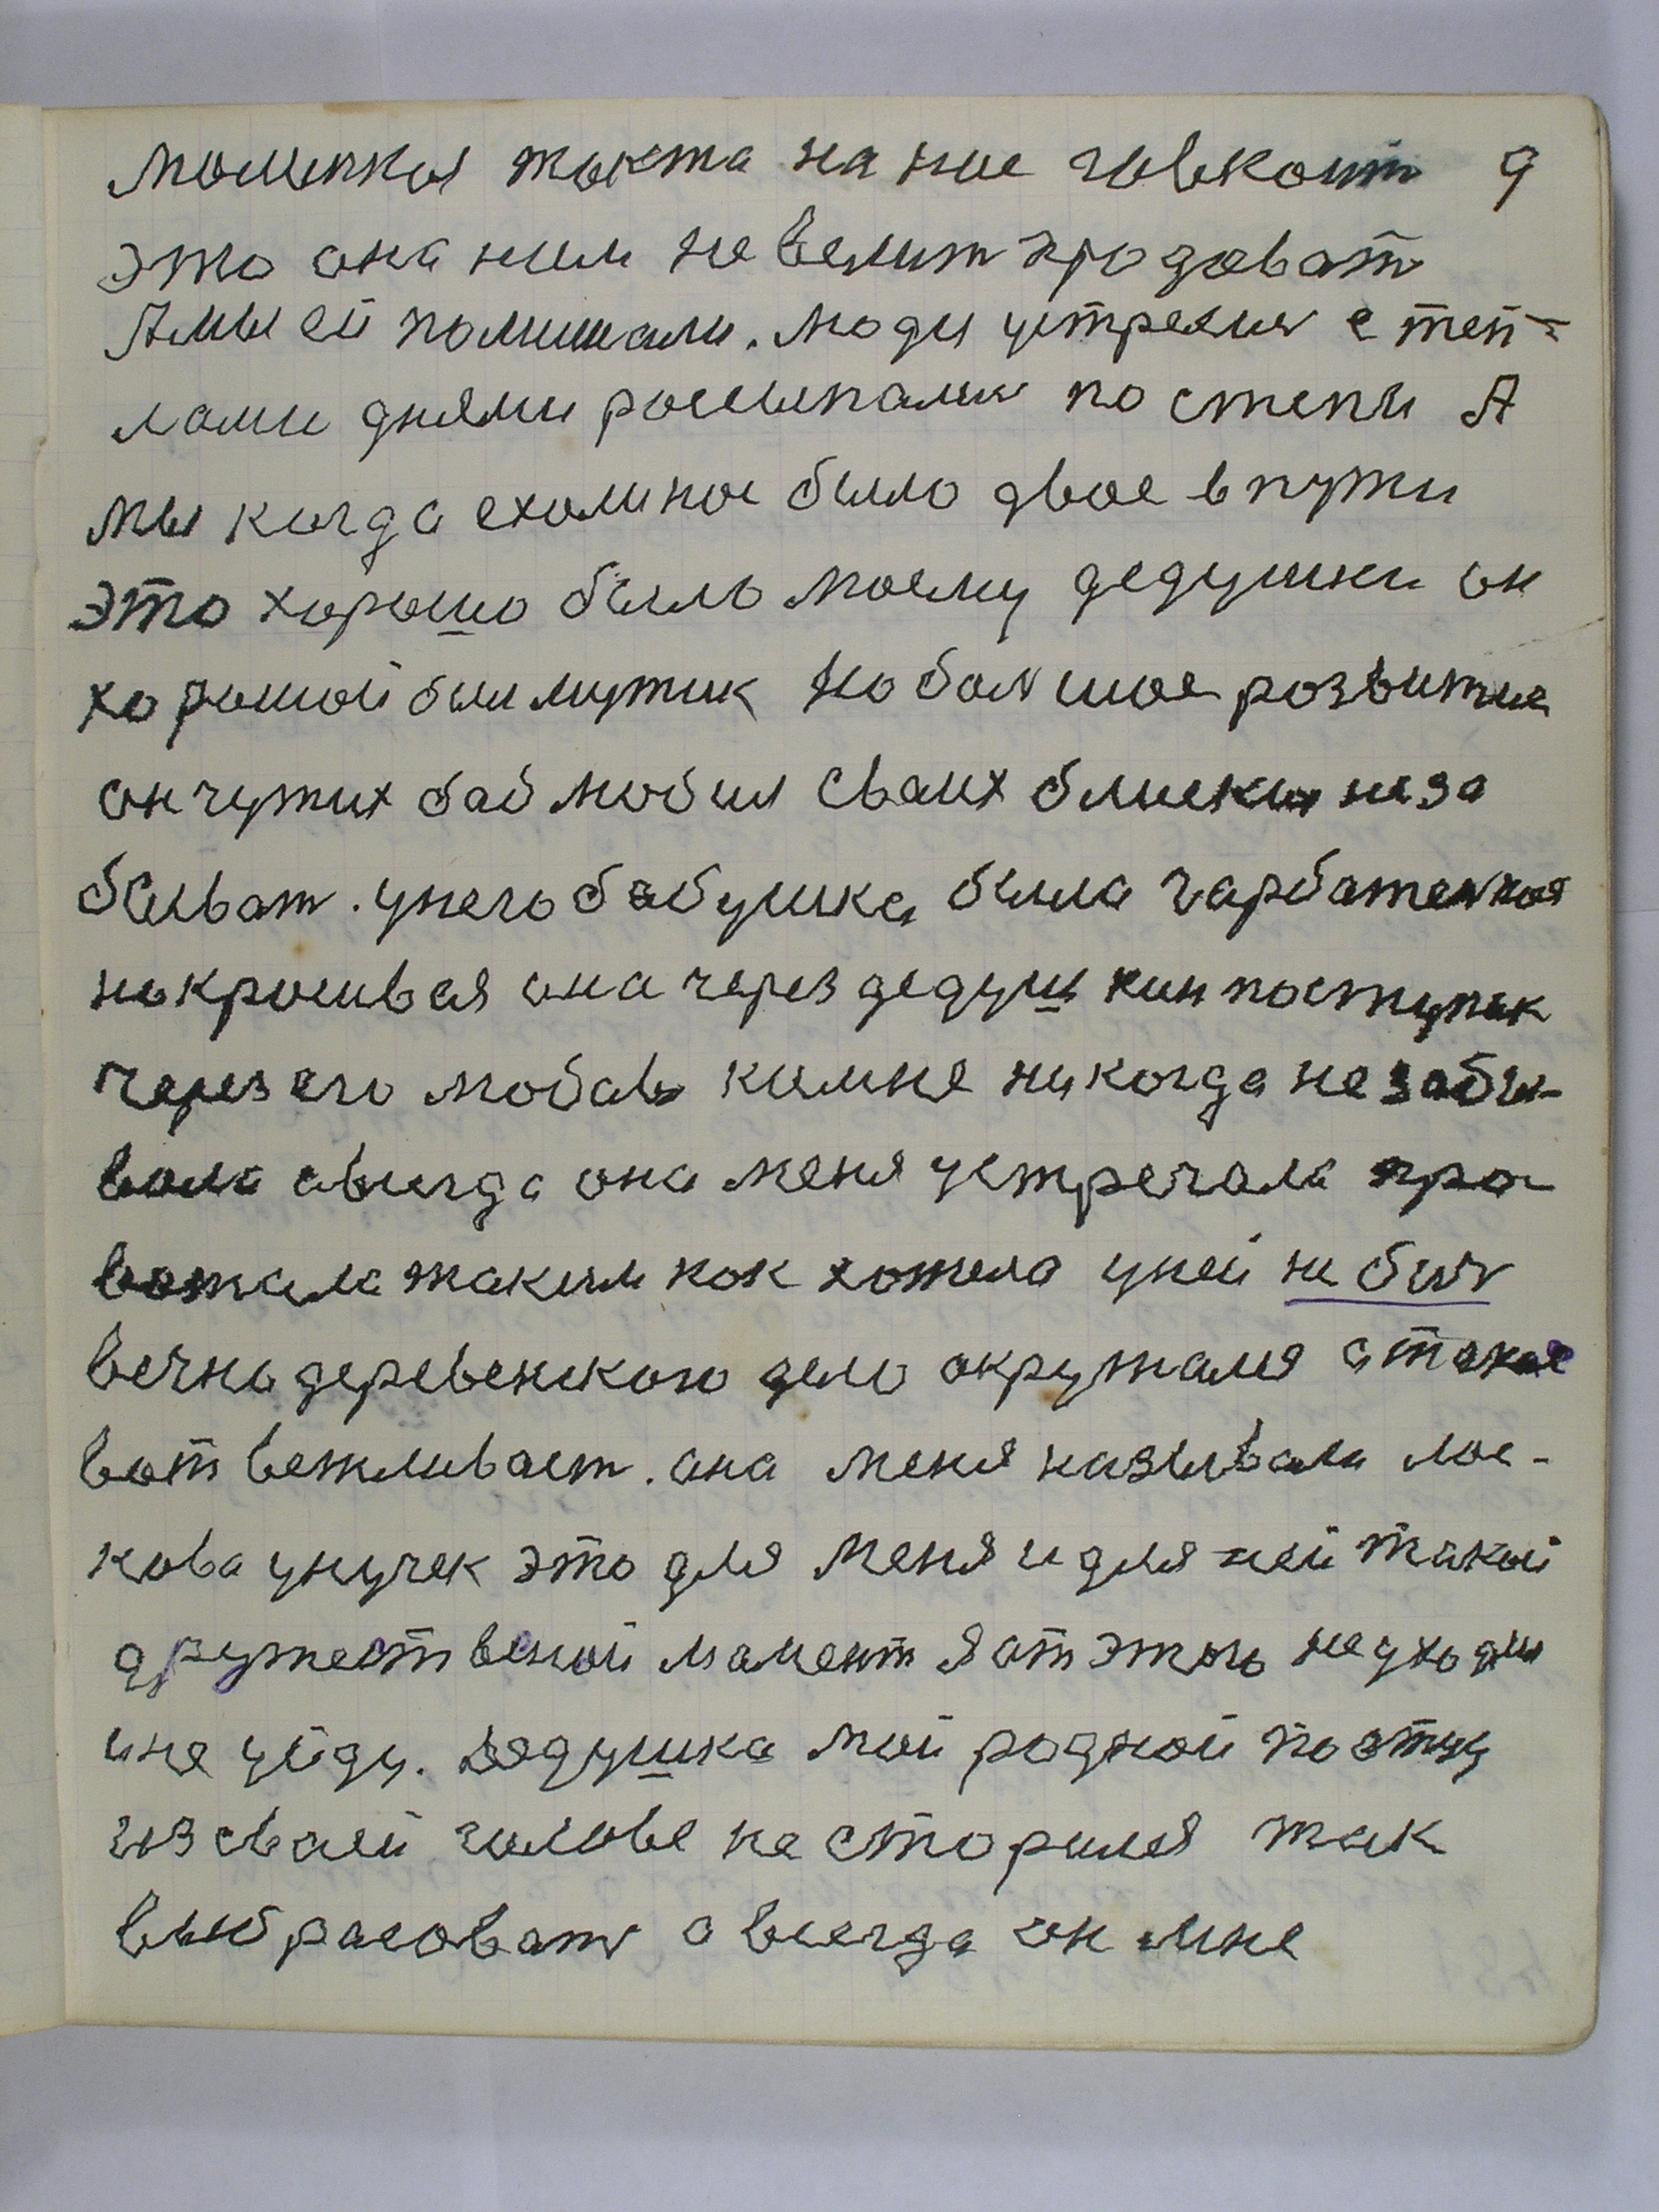 этo она ним не велит продоват
Амы ей помишали. люди устрелис с теп=
лами днями росыпалис по степи А
мы когда ехали нас было двое в пути
это хорошо было моему дедушки он
хорошой был мутик но болшое розвитие
он чужих баб любил сваих блиских не за
быват. унего бабушка была гарбатенкая
некросивая она через дедушкин поступак
через его любовь комне никогда не забы-
вала авсигда она меня устречала про
вожала таким как хотела уней не быт
вечно деревенскою дело окружался а такое
вот вежливаст. ана меня называла лас-
кова унучек это для меня и для ней такой
дружественой мамент я от этого не уходил
ине уйду. Дедушка мой родной поэтму
из сваей голове не сторился так
выбрасоват а всегда он мне